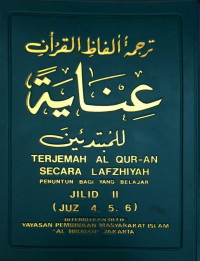 ترجمة ألفاظ القرآن
عناية
للمبتدئين
TERJEMAH AL QUR-AN
SECARA LAFZHIYAH
PENUNTUN BAGI YANG BELAJAR
JILID II
(JUZ 4. 5. 6)
DITERBITKAN OLEH
YAYASAN PEMBINAAN MASYARAKAT ISLAM
"AL HIKMAH" JAKARTA